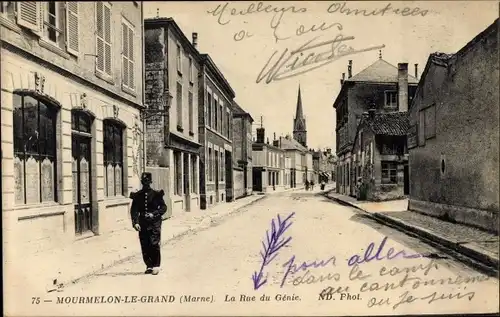 Meilleurs Amitiées
à vous
Nicolas
pour aller
dans le camp au
cantonnement
ou je suis
75 - MOURMELON-LE-GRAND (Marne) La Rue du Génie. ND. Phot.